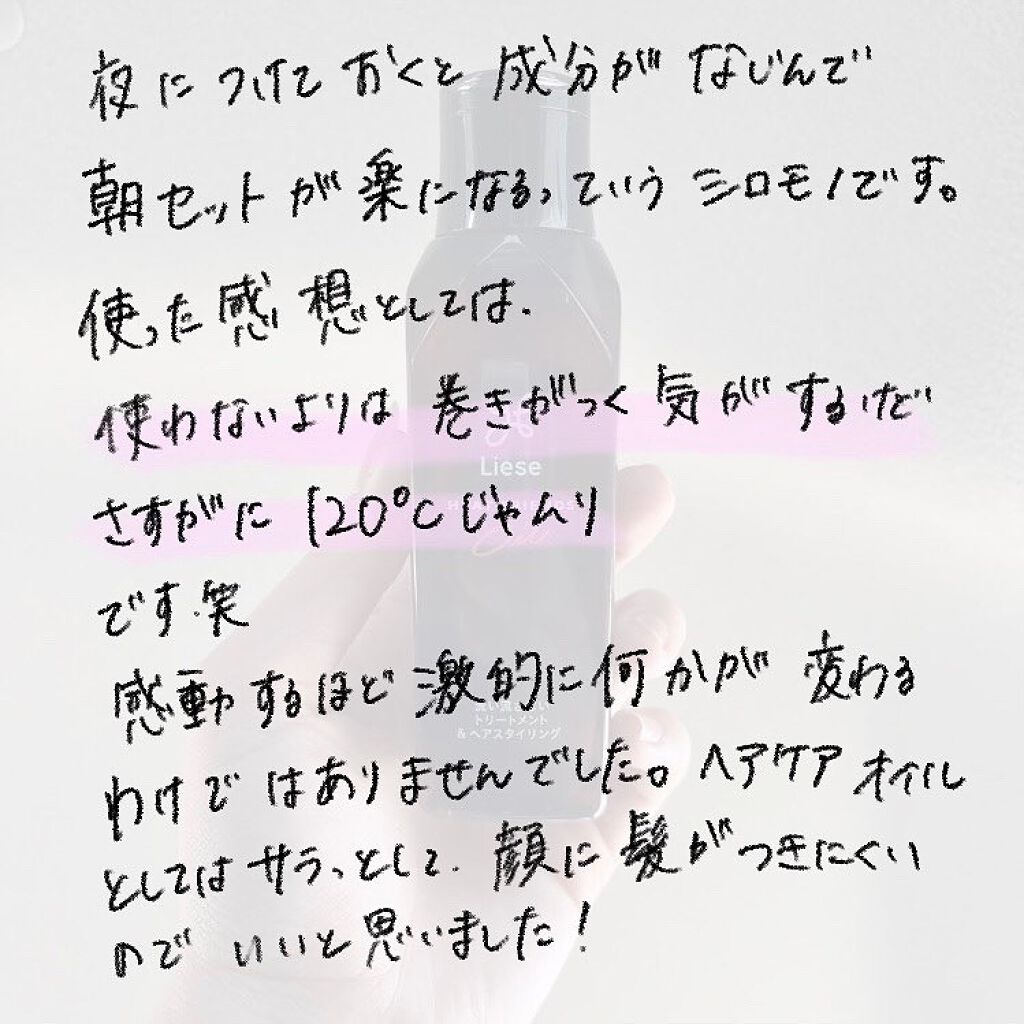 夜につけておくと成分がなじんで
朝セットが楽になるっていうシロモノです。
使った感想としては、
使わないよりは巻きがつく気がするけど
Liese
さすがに120℃じゃムリ
です.笑
感動するほど激的に何かが変わる
洗い流さない
トリートメント
&ヘアスタイリング
わけではありませんでした。ヘアケアオイル
としてはサラっとして、顔に髪がつきにくい
のでいいと思いました!